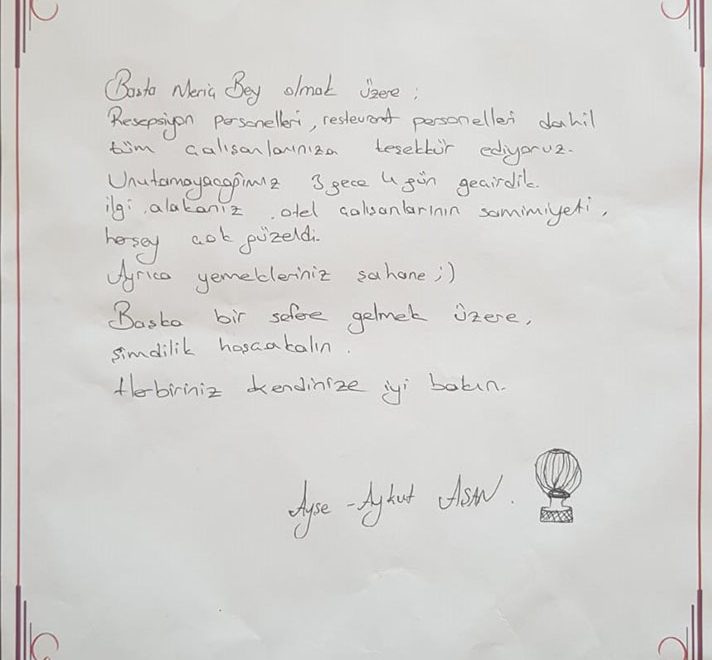 Başta Meriç Bey olmak üzere ;
Resepsiyon personelleri, restaurant personelleri dahil
tüm çalışanlarınıza teşekkür ediyoruz.
Unutamayacağımız 3 gece 4 gün geçirdik.
ilgi, alakanız, otel çalışanlarının samimiyeti,
herşey çok güzeldi.
Ayrıca yemekleriniz şahane ;)
Başka bir sefere gelmek üzere,
şimdilik hoşçakalın.
Herbiriniz kendinize iyi bakın.
Ayşe - Aykut ASAN.